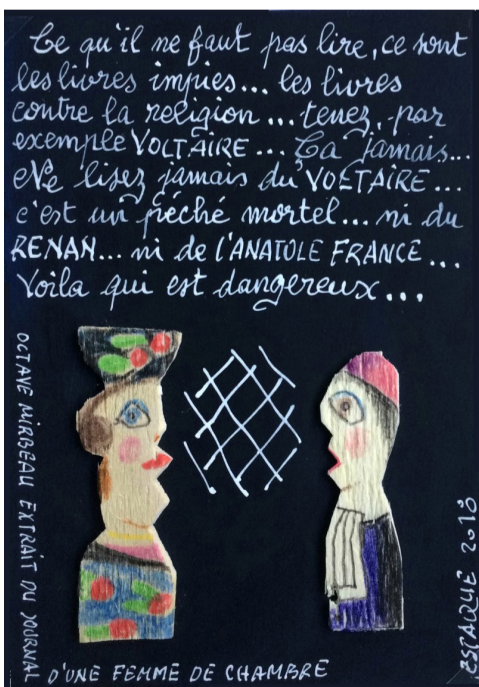 Ce qu'il ne faut pas lire, ce sont
les livres impies... les livres
contre la religion... tenez, par
exemple VOLTAIRE... Ça jamais...
Ne lisez jamais du VOLTAIRE...
c'est un péché mortel... ni du
RENAN... ni de l'ANATOLE FRANCE...
Voila qui est dangereux...
OCTAVE MIRBEAU EXTRAIT DU JOURNAL
D'UNE FEMME DE CHAMBRE
ESTAQUE 2018